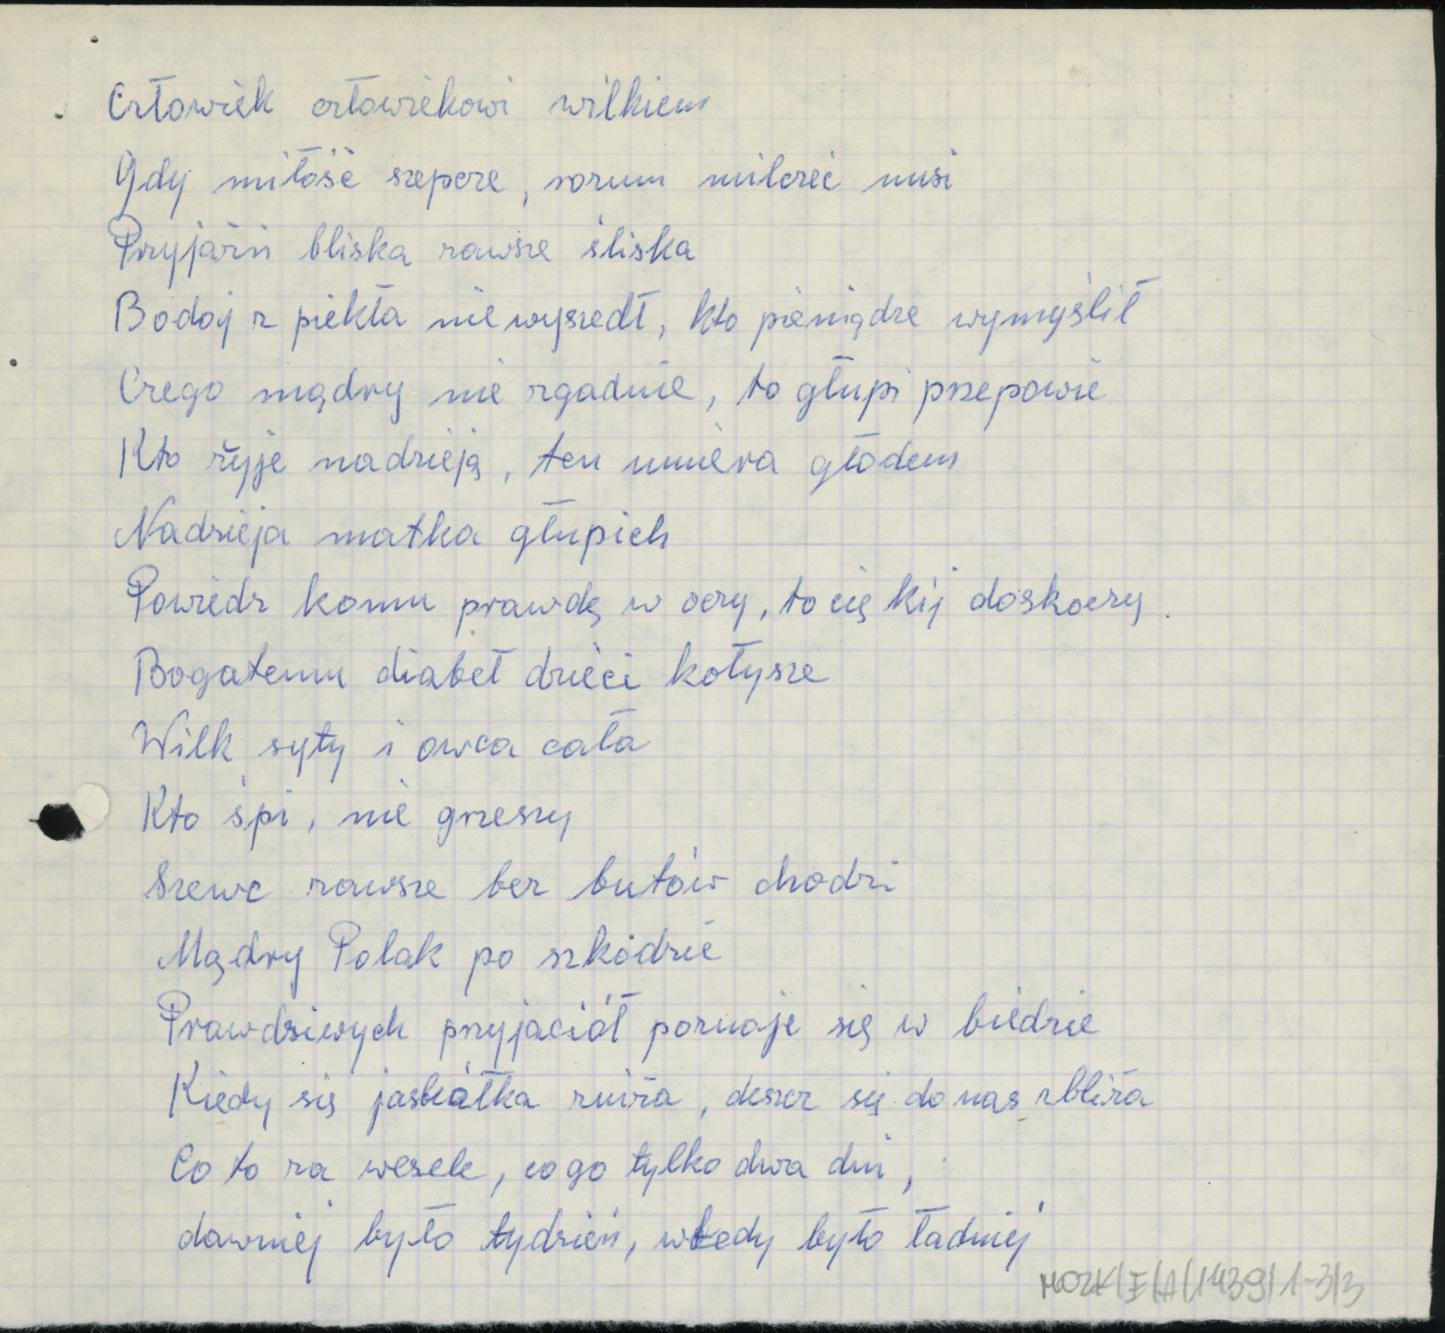 Człowiek człowiekowi wilkiem
Gdy miłość szepcze, rozum milczeć musi
Przyjaźń bliska zawsze śliska
Bodaj z piekła nie wyszedł, kto pieniądze wymyślił
Czego mądry nie zgadnie, to głupi przepowie
Kto żyje nadzieją, ten umiera głodem
Nadzieja matka głupich
Powiedz komu prawdę w oczy, to cię kij doskoczy.
Bogatemu diabeł dzieci kołysze
Wilk syty i owca cała
Kto śpi, nie grzeszy
Szewc zawsze bez butów chodzi
Mądry Polak po szkodzie
Prawdziwych przyjaciół poznaje się w biedzie
Kiedy się jaskółka zniża, deszcz się do nas zbliża
Co to za wesele, co go tylko dwa dni,
dawniej było tydzień, wtedy było ładniej
MOZK/E/A/1439/1-3/3